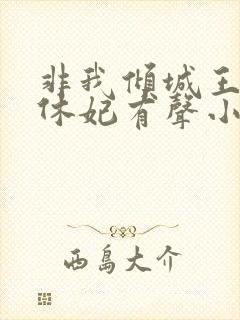 非我傾城王
休妃有聲小
西島大介